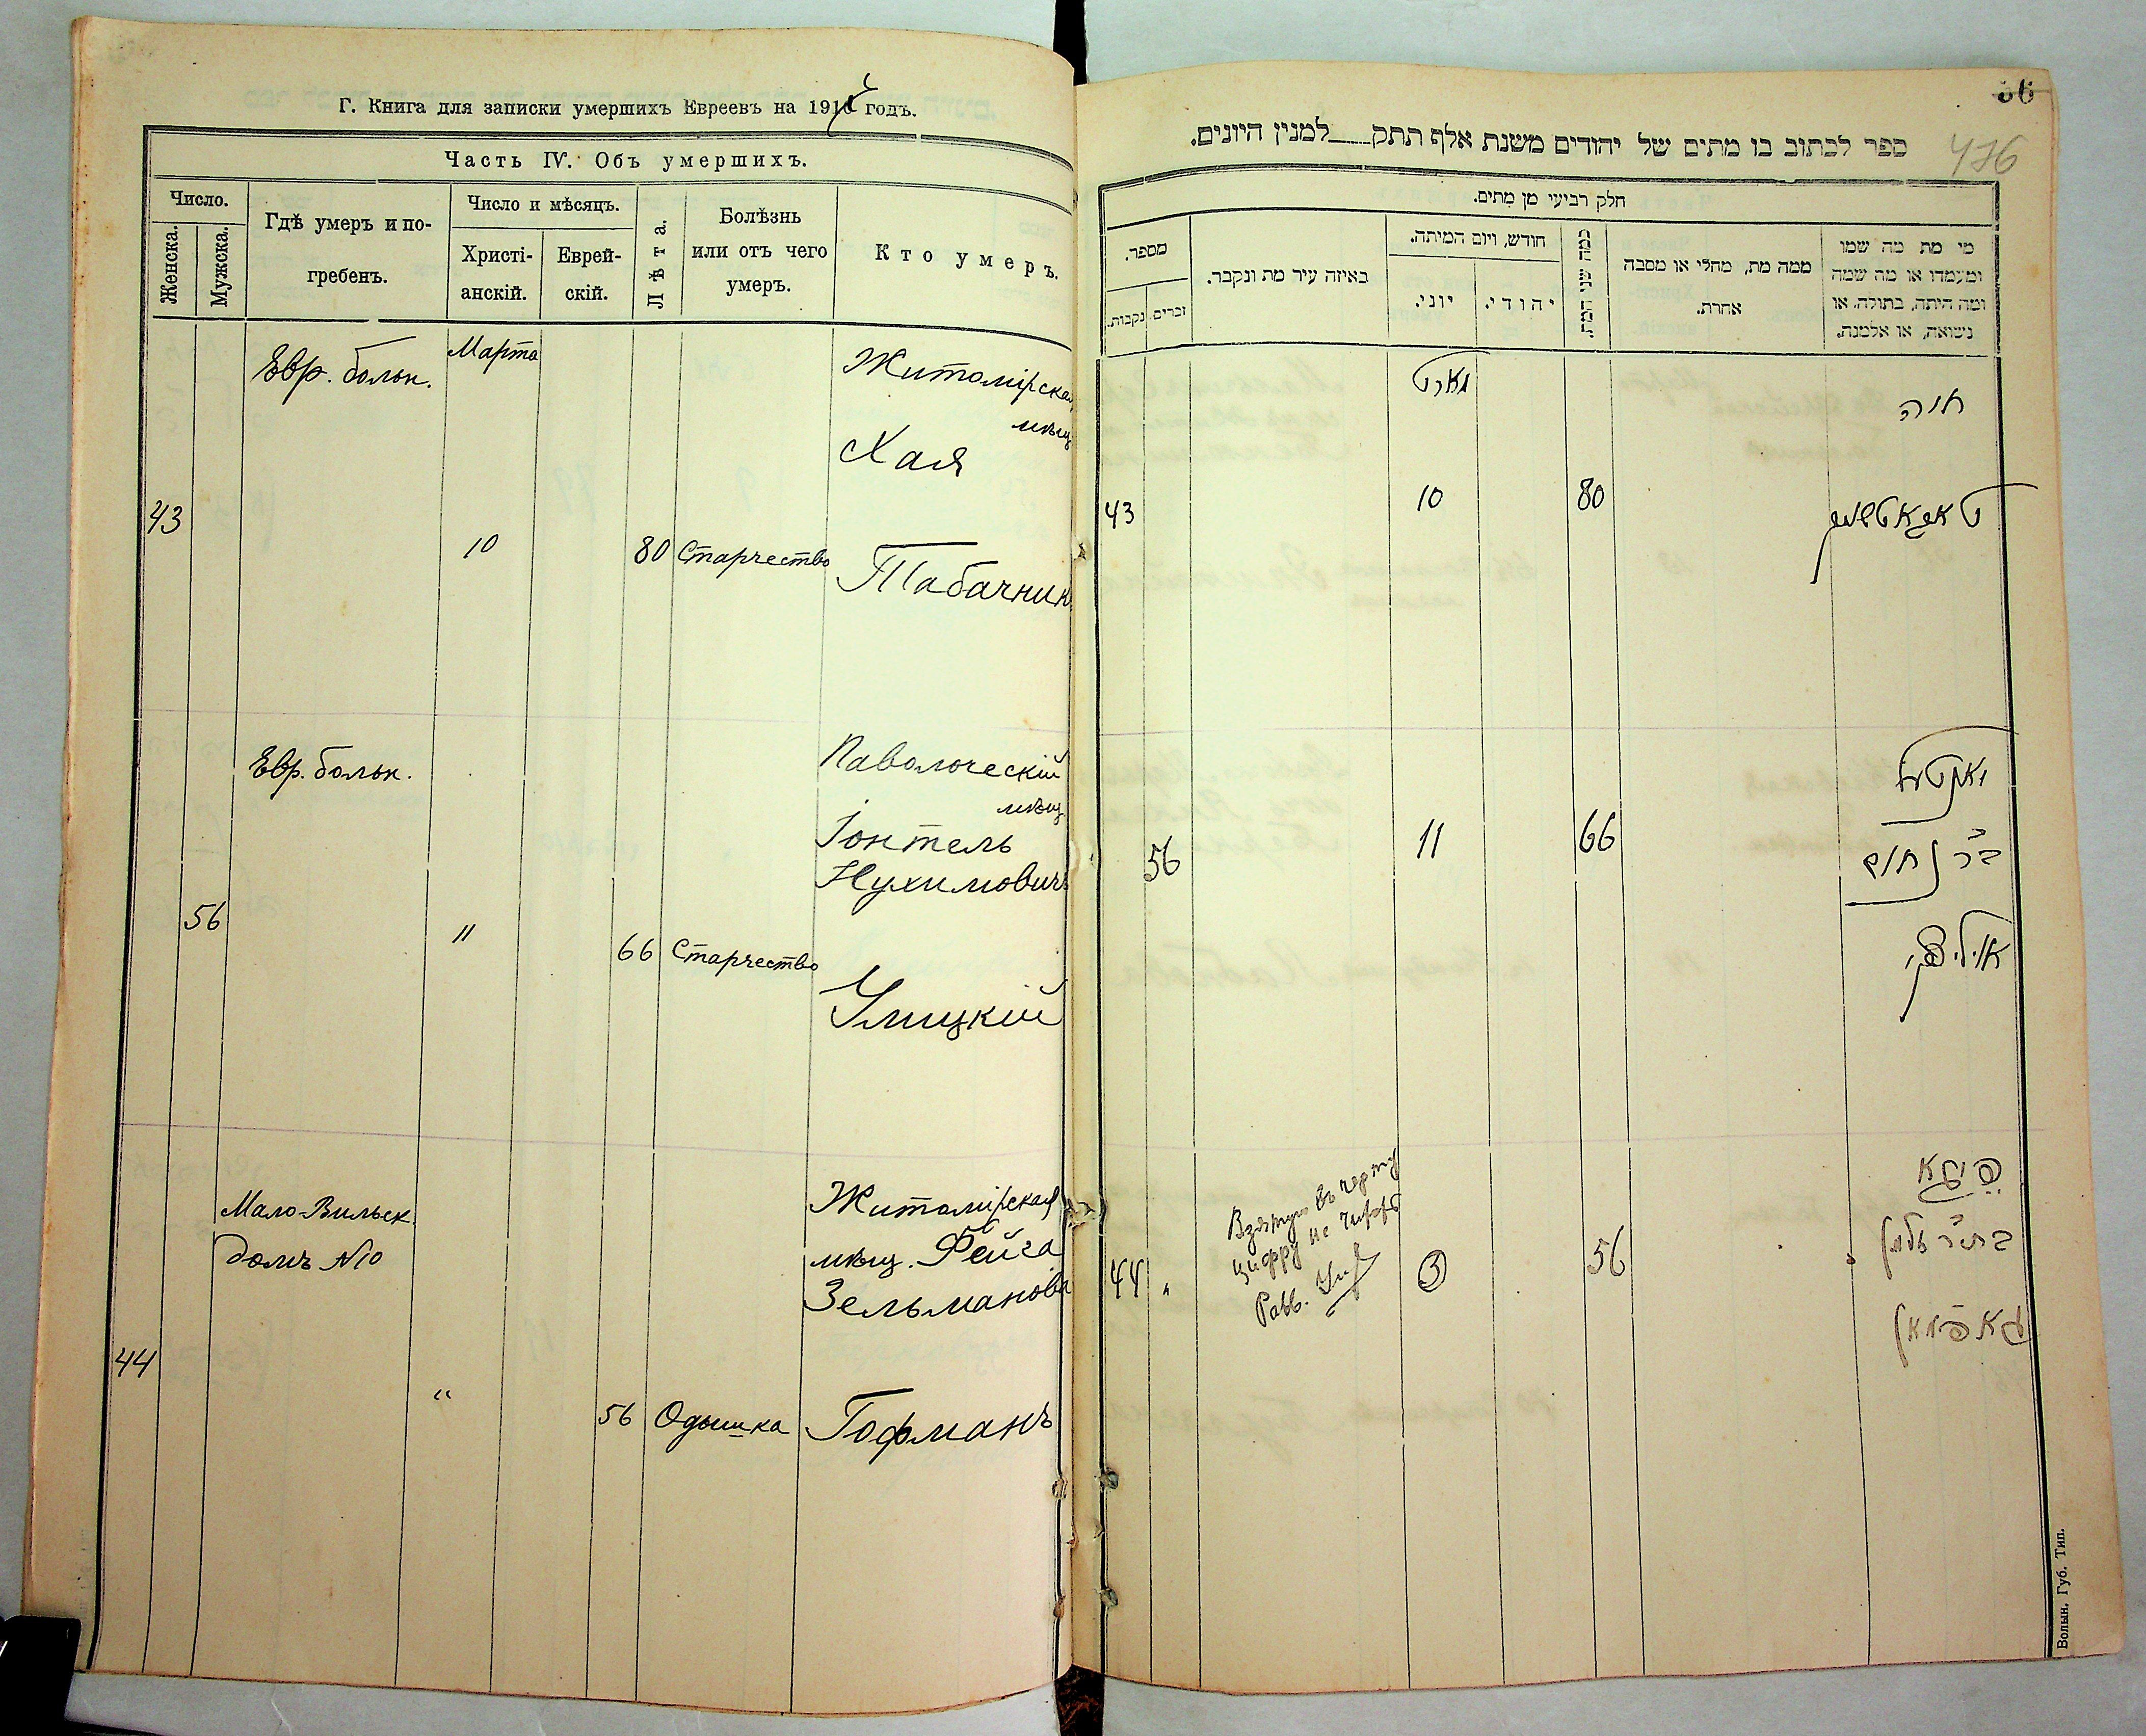 Г. Книга для записки умершихъ Евреевъ на 191 годъ.
Часть IV. Объ умершихъ.
Число.
Женска.
Мужска.
Гдѣ умеръ и по-
гребенъ.
Число и мѣсяцъ.
Христі-
анскій.
Еврей-
скій.
Лѣта.
Болѣзнь
или отъ чего
умеръ.
Кто умеръ.
Евр. больн.
Марта
Житомірская
мѣщ
Хая
43
10
80
Старчество
Табачник
Евр. больн.
Паволоческій
мѣщ
Іонтель
Нухимовичъ
56
11
66
Старчество
Улицкій
Мало-Вильск.
домъ №10
Житомірская
мѣщ. Фейга
Зельманова
44
"
56
Одышка
Гофманъ
36
476
ספר לכתוב בו מתים של יהודים משנת אלף תתק___למנין היונים.
חלק רביעי מן מתים.
מספר.
נקבות.
זכרים.
באיזה עיר מת ונקבר.
חודש, ויום המיתה.
יוני.
יהודי.
כמה שני המת.
ממה מת, מחלי או מסבה
אחרת.
מי מת מה שמו
ומעמדו או מה שמה
ומה היתה, בתולה, או
נשואה, או אלמנה.
מארט
חיה
43
10
80
טאבאטשניק
יאנטעל
56
11
66
ב"ר נחום
אוליצקי
פייגא
44
"
Взятую въ черту
цифру не читать
Равв.
3
56
בת ר' זלמן
גאפמאן
Волын. Губ. Тип.